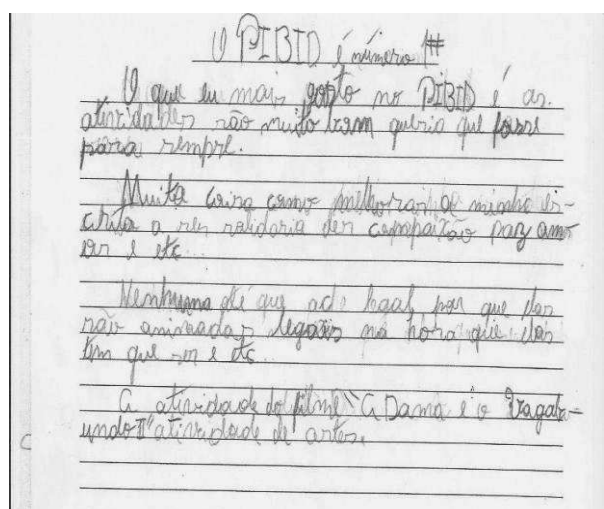 O PIBID é número 1#
O que eu mais gosto no PIBID é as
atividades são muito bom queria que fosse
para sempre.
Muita coisa como melhorar a minha es-
crita a ser solidaria ter compaixão paz amo
er e etc...
Nenhuma até que acho legal por que elas
são animadas legais na hora que elas
tem que ser e etc...
A atividade do filme "A Dama e o Vagab-
undo II" atividade de artes.